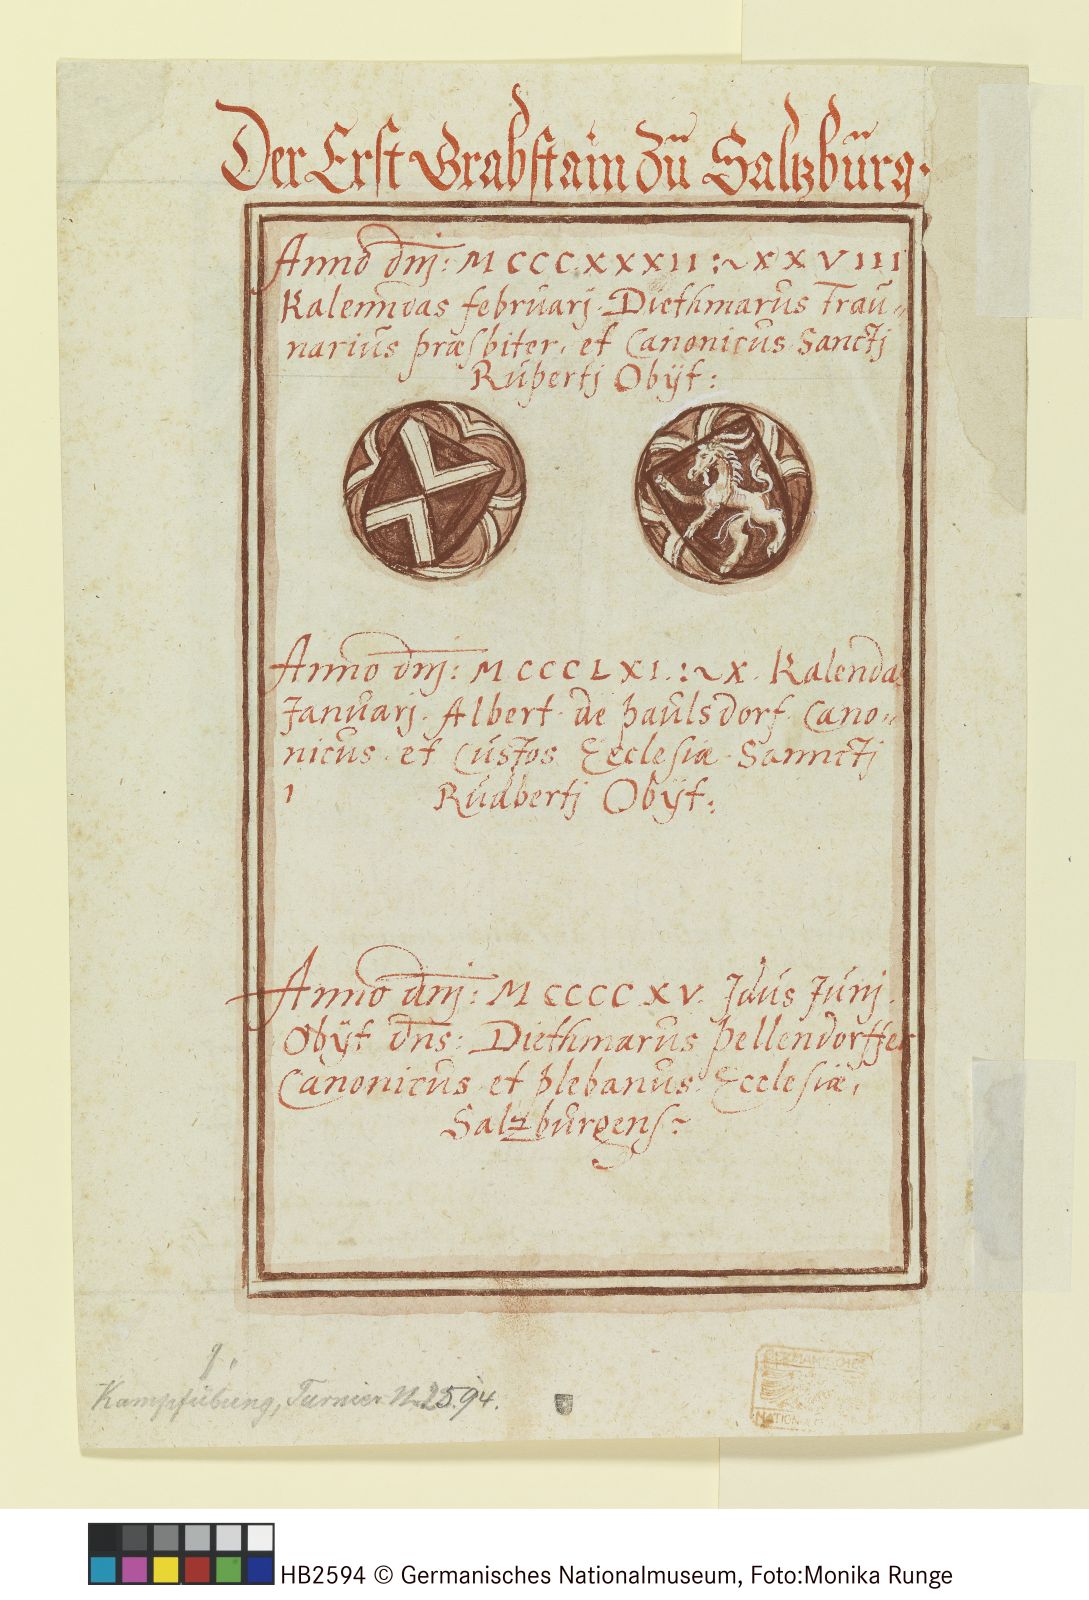 Der Erst Grabstain Zů Saltzbůrg.
Anno dnj: MCCCXXXII : XXVIII
Kalenndas febrůarj. Diethmarůs Traů-
narius præsbiter, et Canonicůs Sanctj
Růpertj Obÿt:
Anno dnj: MCCCLXI. : X. Kalendas
Janůarj. Albert de paůlsdorf. Cano-
nicůs et Cůstos Ecclesiæ Sannctj
1 Růdbertj Obÿt:
Anno dnj: MCCCCXV. Jdůs Jůnj.
Obÿt dns: Diethmarůs pellendorffer
Canonicůs et plebanůs Ecclesiæ,
Saltzbůrgens:
1.
Kampfübung, Turnier N. 2594.
GERMANISCHES
NATIONAL
HB2594 © Germanisches Nationalmuseum, Foto:Monika Runge